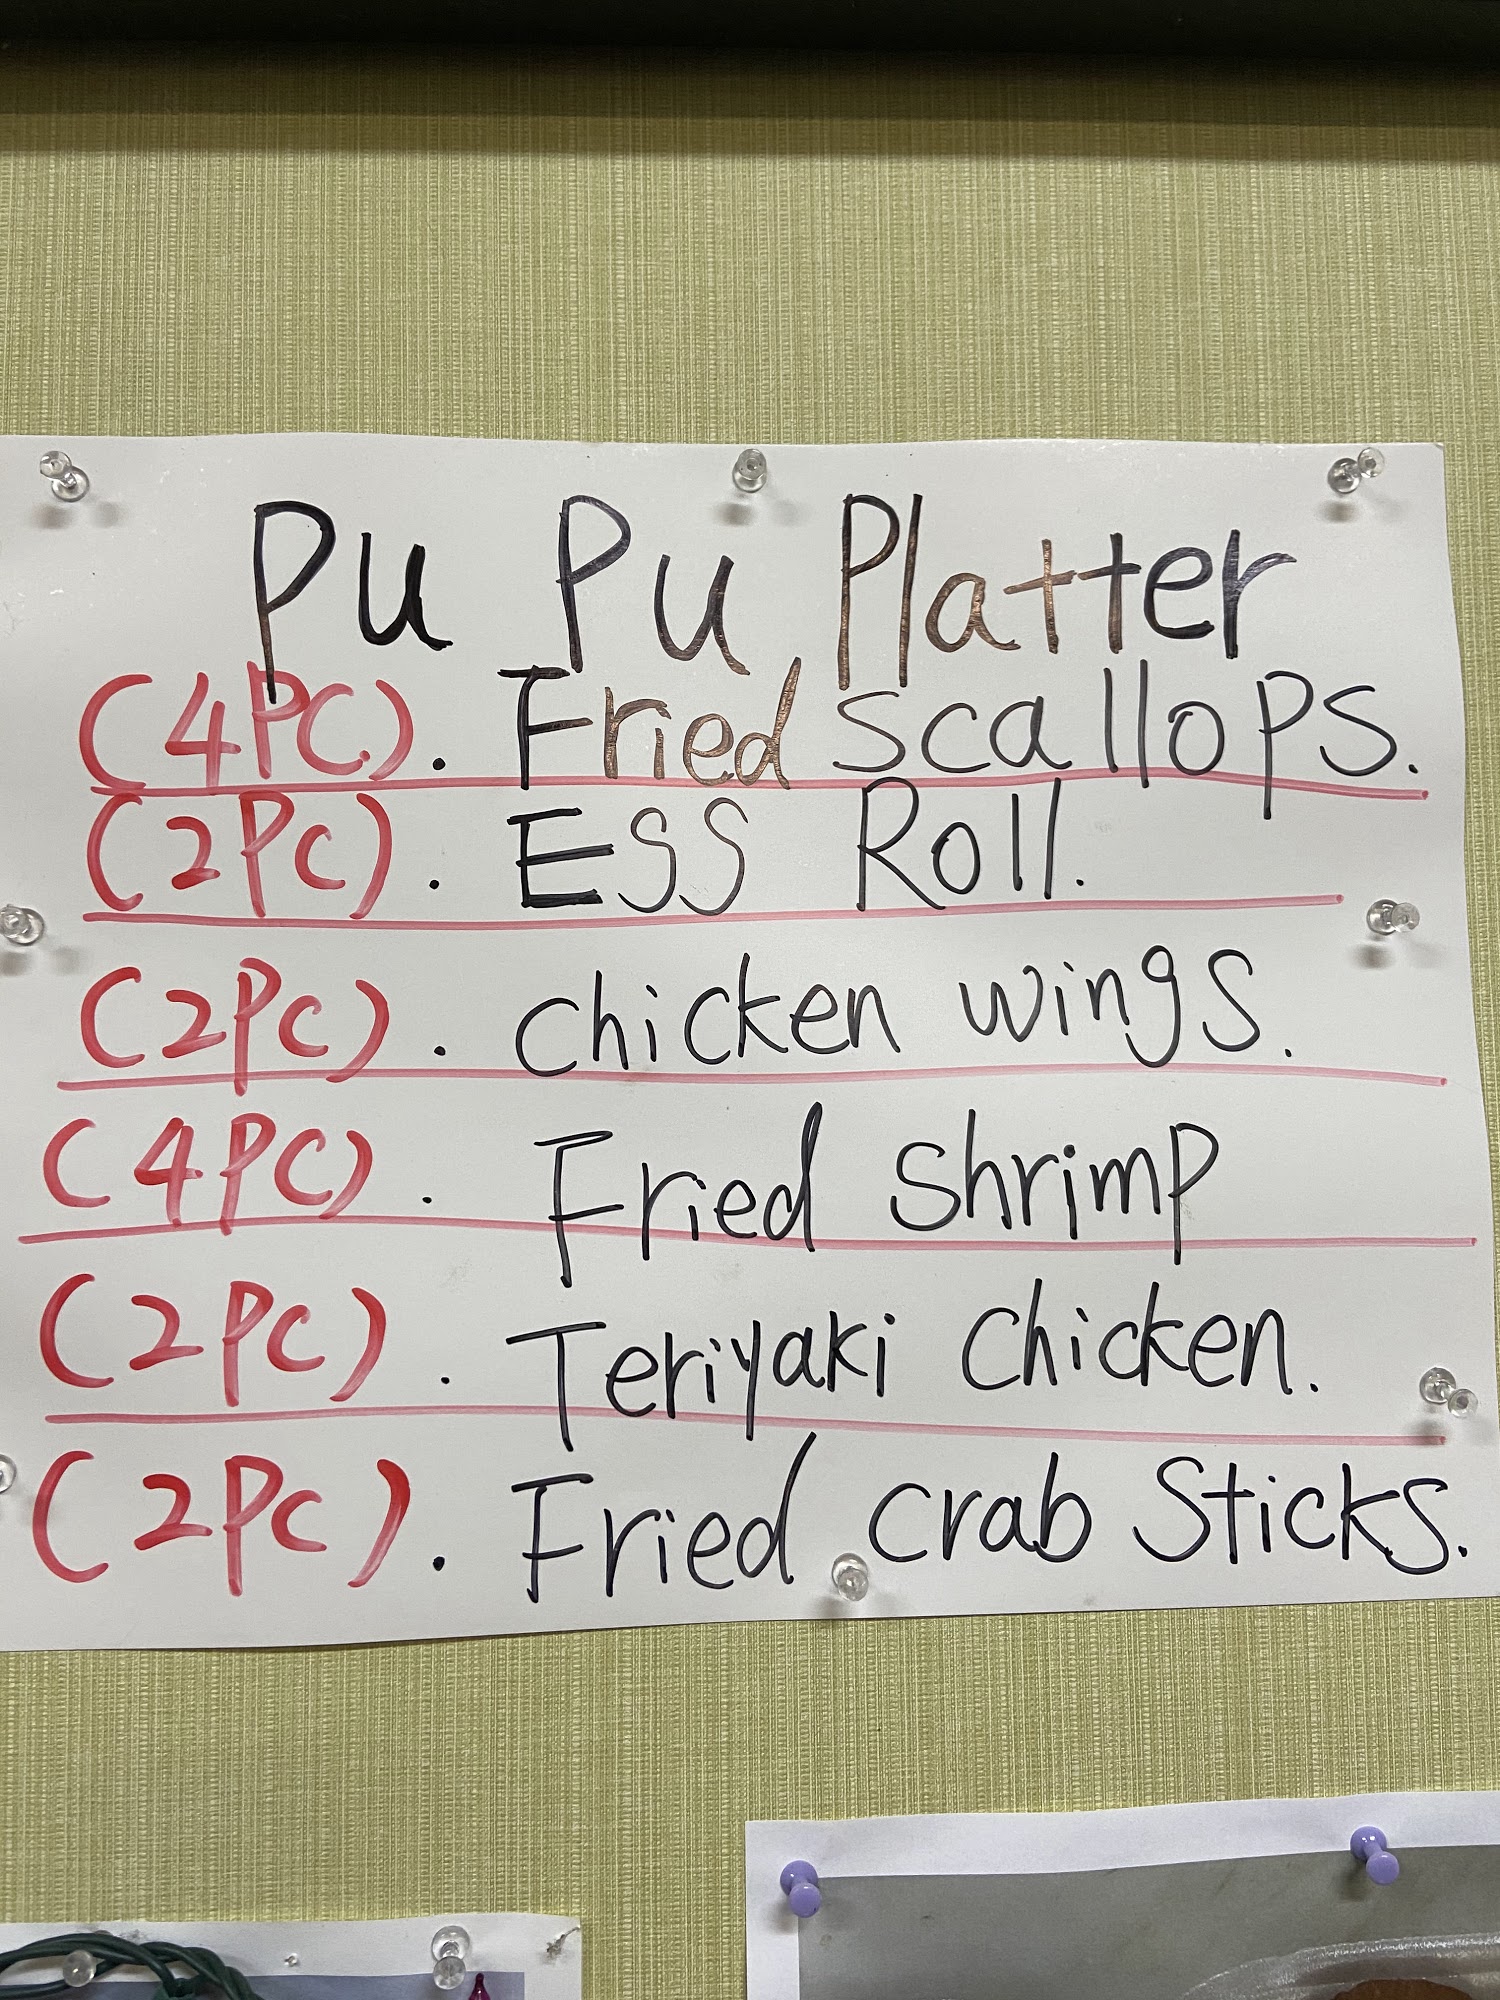 Pu Pu Platter
(4PC). Fried scallops.
(2PC). Egg Roll.
(2PC). chicken wings.
(4PC). Fried shrimp
(2PC). Teriyaki chicken.
(2PC). Fried crab Sticks.